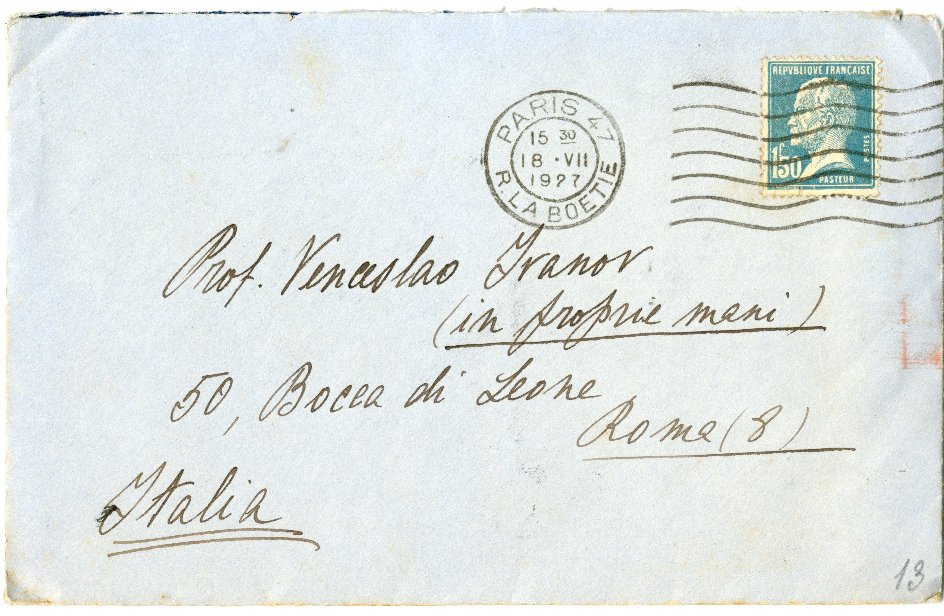 REPVBLIQVE FRANÇAISE
1F50
POSTES
PASTEUR
PARIS 47
15 30
18 · VII
1927
R. LA BOETIE
Prof. Venceslao Ivanov
(in proprie mani)
50, Bocca di Leone
Roma (8)
Italia
13